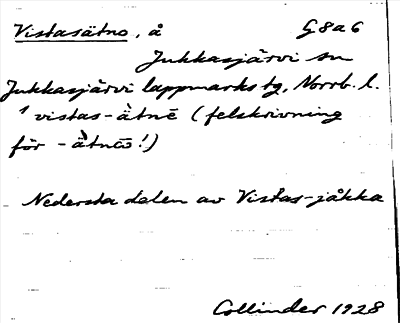 Vistasätno, å G8a6
Jukkasjärvi sn
Jukkasjärvi lappmarks tg, Norrb. l.
vistas-àtnē (felskrivning
för -àtnō!)
Nedersta delen av Vistas-jåkka
Collinder 1928